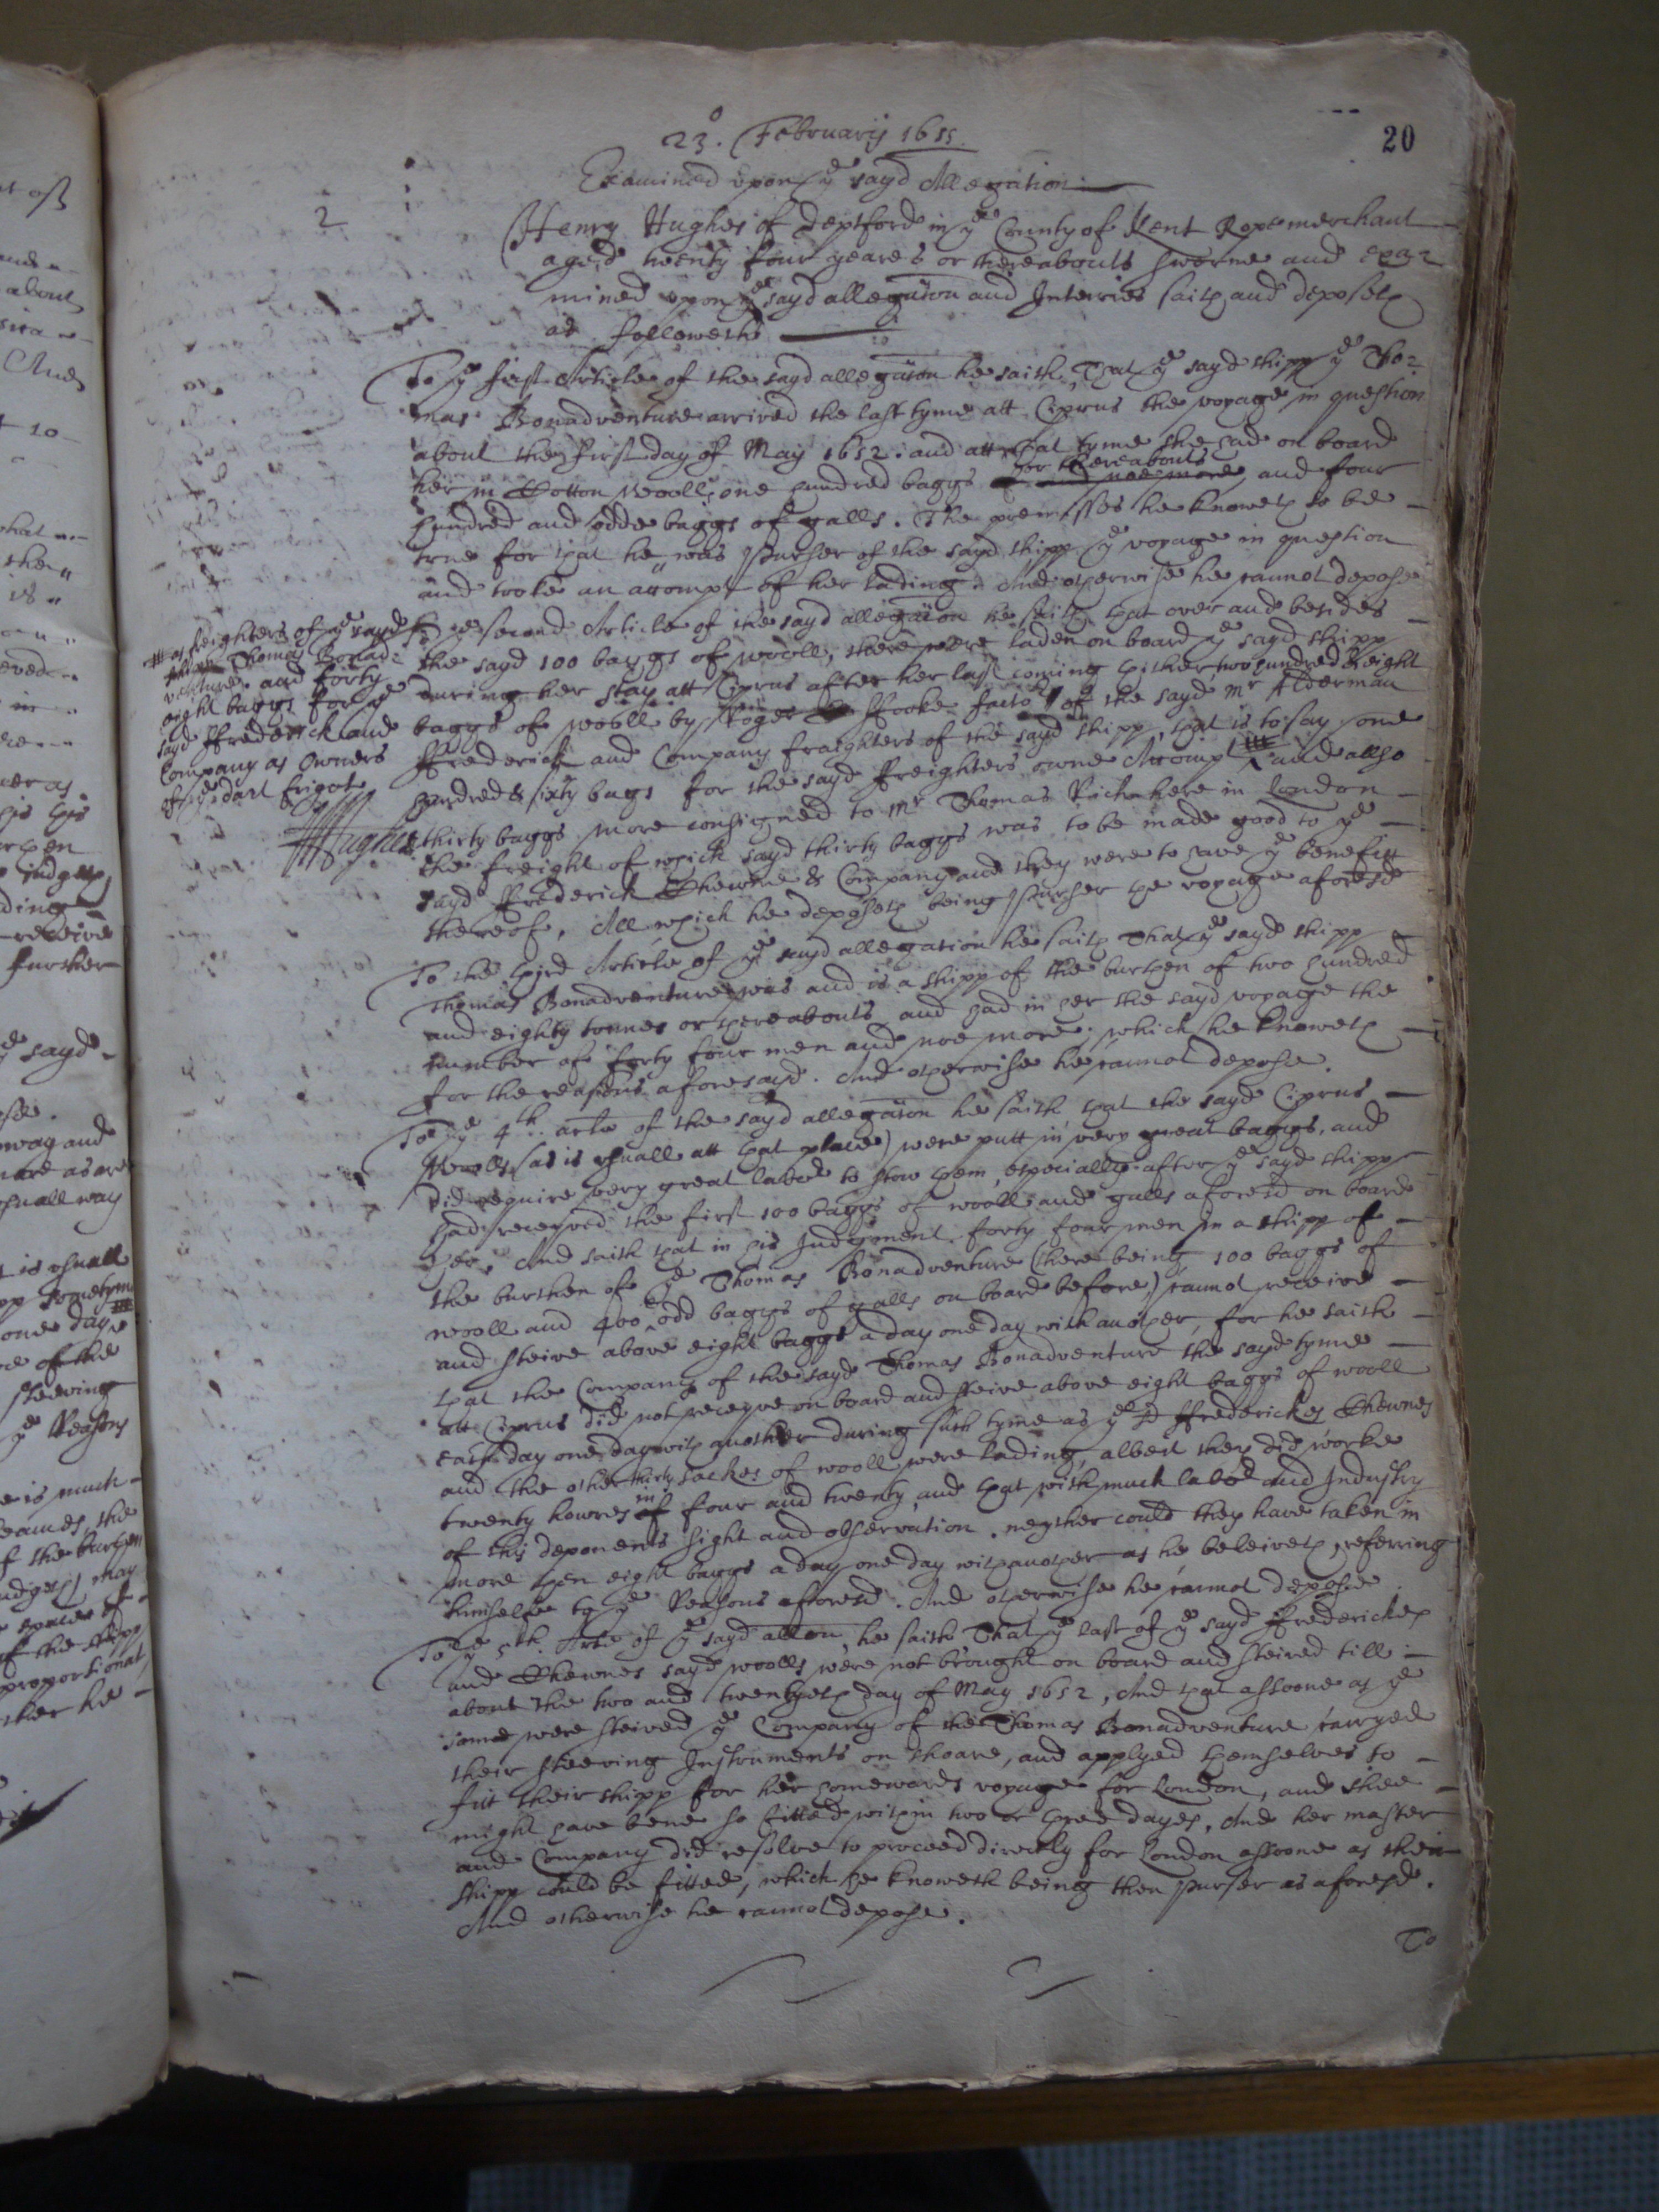 20
23º. February 1655
Examined upon ye sayd Allegation
2
Henry Hughes of deptford in ye County of Kent Ropemerchant
aged twenty four yeares or thereabouts sworne and exa=
mined upon ye sayd allegation and Interries saith and deposeth
as followeth
To ye first Article of the sayd allegation he saith, That ye sayd shipp ye Tho=
mas Bonadventure arrived the last tyme att Ciprus the voyage in question
about the first day of May 1652: and att that tyme she had on board
her in Cotton wooll, one hundred baggs or thereabouts and noe more, and four
hundred and odde baggs of galls. The premisses he knoweth to be
true for that he was Purser of the sayd shipp ye voyage in question
and tooke an accompt of her lading. And otherwise he cannot depose
To ye second Article of the sayd allegation he saith that over and besides
the sayd 100 baggs of wooll, there were laden on board ye sayd shipp
during her stay att Ciprus after her last coming thither, two hundred & eight
baggs of wooll by Roger ffooke factor of the sayd Mr Alderman
ffrederick and Company fraighters of the sayd shipp, that is to say one
hundred & sixty bags for the sayd freighters owne Accompt and allso
thirty baggs more consigned to Mr Thomas Rich here in London
the freight of which sayd thirty baggs was to be made good to ye
sayd ffrederick Thewne & Company and they were to have ye benefitt
thereof, All which he deposeth being Purser the voyage aforesd
as freighters of ye sayd
shipp Thomas Bonad=
venture. and forty
eight baggs for ye
sayd ffrederick and
Company as Owners
of ye darl frigot
HHughes
To the third Article of ye sayd allegation he saith That ye sayd shipp
Thomas Bonadventure was and is a shipp of the burthen of two hundred
and eighty tonnes or thereabouts and had in her the sayd voyage the
number of forty four men and noe more, which he knoweth
for the reasons aforesayd. And otherwise he cannot depose.
To ye 4th. arle of the sayd allegation he saith that the sayd Ciprus
Woolls (as is usuall att that place) were putt in very great baggs, and
did require very great labor to stow them, especially after ye sayd shipp
had receyved the first 100 baggs of wooll and galls aforesd on board
her, And saith that in his Judgment forty four men in a shipp of
the burthen of ye Thomas Bonadventure (there being 100 baggs of
wooll and 400 odd baggs of galls on board before) cannot receive
and steive above eight baggs a day one day with another, for he saith
that the Company of the sayd Thomas Bonadventure the sayd tyme
att Ciprus did not receyve on board and steive above eight baggs of wooll
each day one day with another during such tyme as ye sd ffredericks Thewnes
and the other thirty sackes of wooll were lading, albeit they did worke
twenty howres in of four and twenty, and that with much labor and Industry
of this deponents sight and observation. neyther could they have taken in
more then eight baggs a day one day with another as he beleiveth, referring
himselfe to ye Reasons aforesd. And otherwise he cannot depose.
To ye 5th. Arle of ye sayd allon he saith That ye last of ye sayd ffrederickes
and Thewnes sayd woolls were not brought on board and steived till
about the two and twentyeth day of May 1652, And that assoone as ye
same were steived ye Company of the Thomas Bonadventure carryed
their steeving Instruments on shoare, and applyed themselves to
fitt their shipp for her homewards voyage for London, and shee
might have bene so fitted within two or three dayes, And her master
and Company did resolve to proceed directly for London assoone as their
shipp could be fitted, which he knoweth being then purser as aforesd.
And otherwise he cannot depose.
To